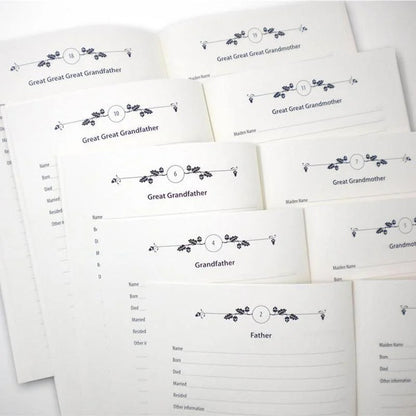 18
Great Great Great Grandfather
19
Great Great Great Grandmother
Maiden Name
10
Great Great Grandfather
11
Great Great Grandmother
Maiden Name
Name
Born
Died
Married
Resided
Other
6
Great Grandfather
7
Great Grandmother
Maiden Name
Name
4
Grandfather
5
Grandmother
Maiden Name
Name
Born
Died
Married
Resided
Other infor
2
Father
Name
Born
Died
Married
Resided
Other information
Maiden Name
Born
Died
Married
Resided
Other information